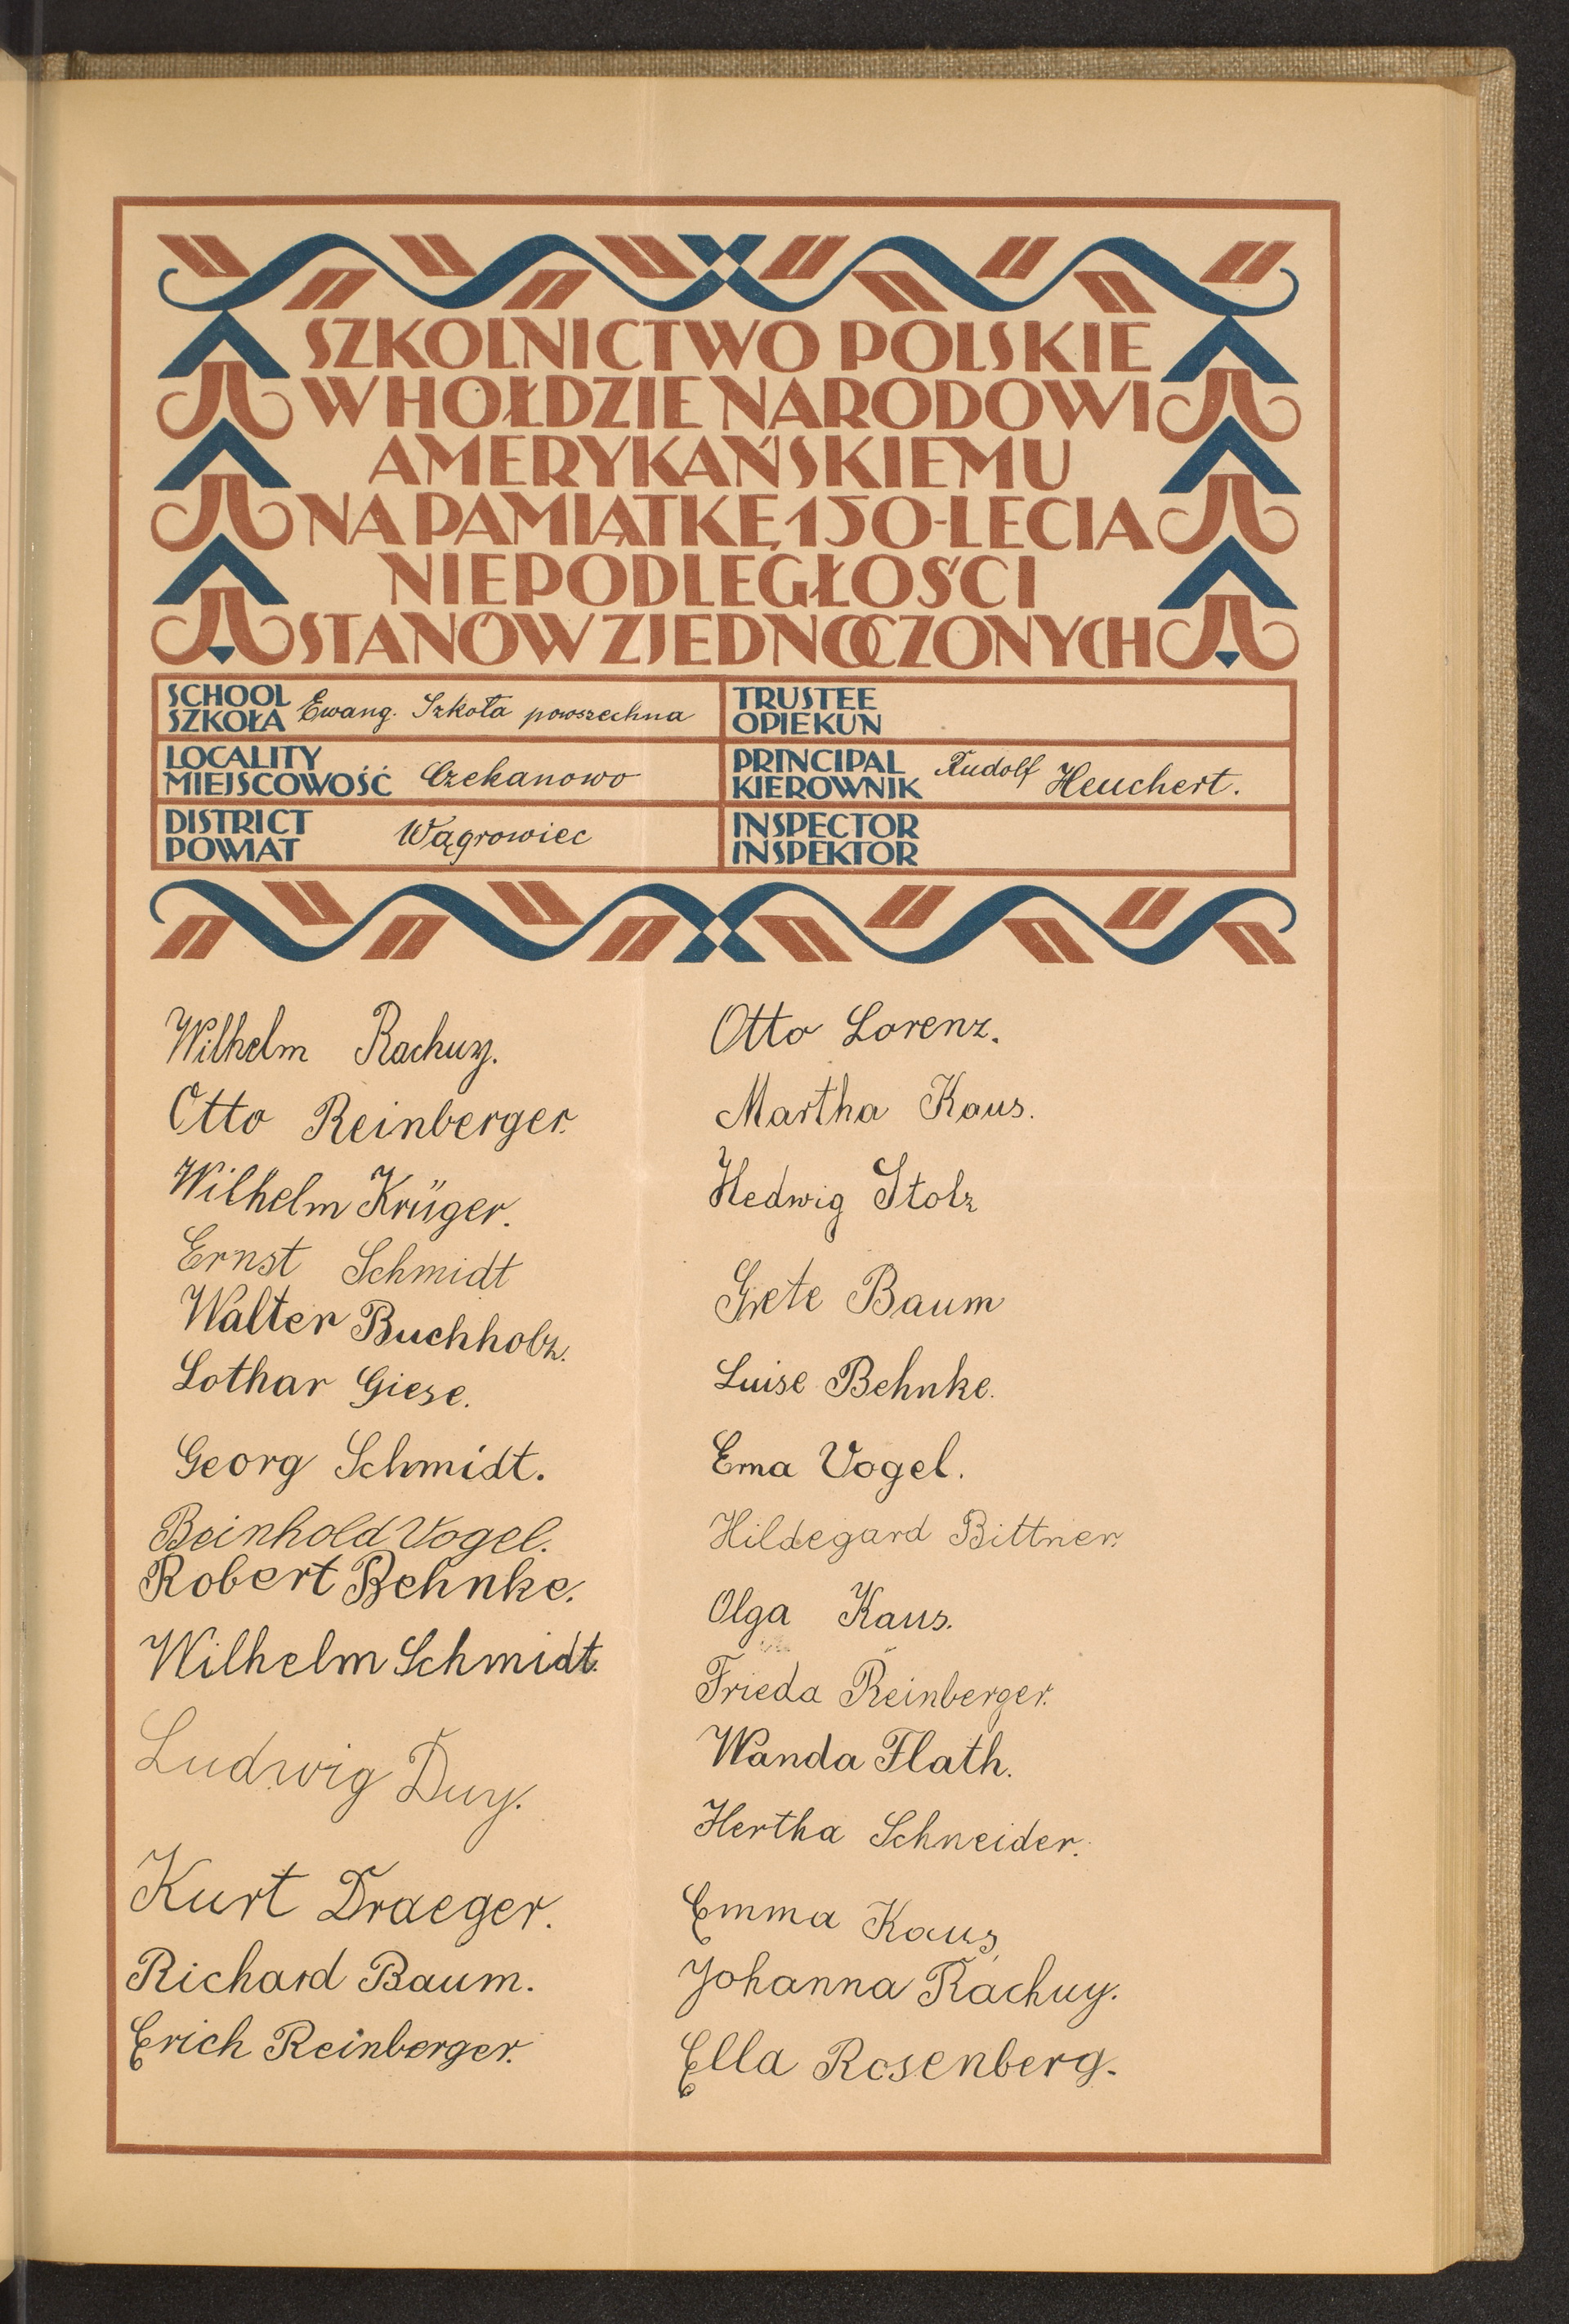 SZKOLNICTWO POLSKIE
W HOŁDZIE NARODOWI
AMERYKAŃSKIEMU
NA PAMIĄTKĘ 150-LECIA
NIEPODLEGŁOŚCI
STANÓW ZJEDNOCZONYCH
SCHOOL
SZKOŁA Ewang. Szkoła powszechna
TRUSTEE
OPIEKUN
LOCALITY
MIEJSCOWOŚĆ Czekanowo
PRINCIPAL
KIEROWNIK Rudolf Heuchert.
DISTRICT
POWIAT Wągrowiec
INSPECTOR
INSPEKTOR
Wilhelm Rachuy.
Otto Reinberger.
Wilhelm Krüger.
Ernst Schmidt
Walter Buchholz.
Lothar Giese.
Georg Schmidt.
Reinhold Vogel.
Robert Behnke.
Wilhelm Schmidt.
Ludwig Duy.
Kurt Draeger.
Richard Baum.
Erich Reinberger.
Otto Lorenz.
Martha Kaus.
Hedwig Stolz
Grete Baum
Luise Behnke.
Erna Vogel.
Hildegard Bittner.
Olga Kaus.
Frieda Reinberger.
Wanda Flath.
Hertha Schneider.
Emma Kaus,
Johanna Rachuy.
Ella Rosenberg.